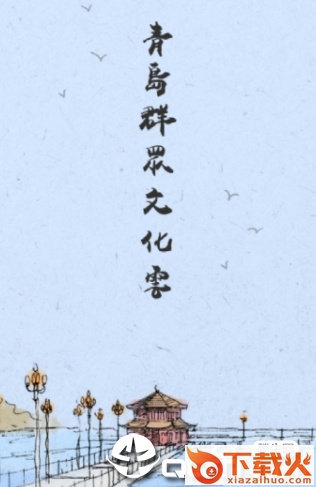 青島群眾文化雲
下载火
xiazaihuo.com